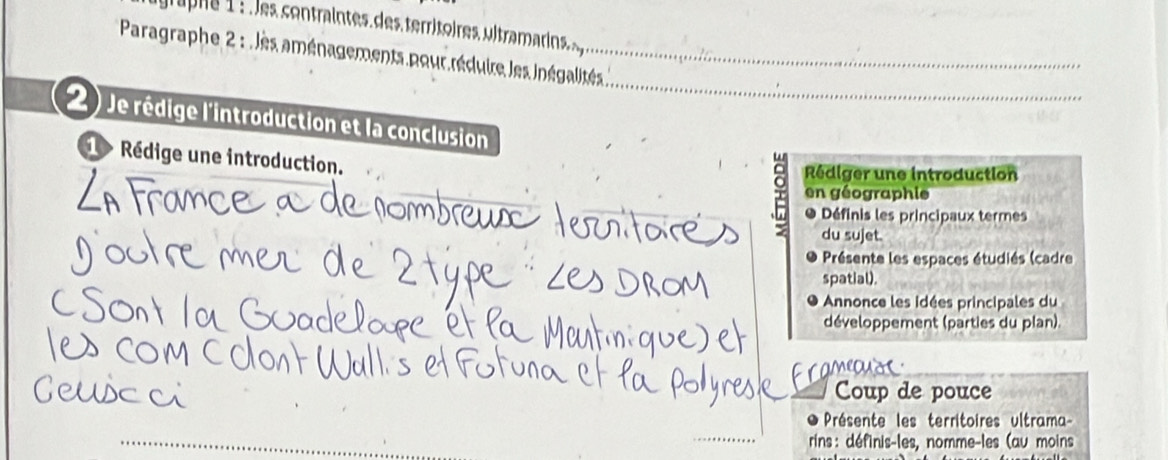 1 : les contraintes des territoires ultramarins
Paragraphe 2 : les aménagements pour réduire les inégalités
2 Je rédige l'introduction et la conclusion
1 Rédige une introduction.
LA France a de nombreux territoires
D'outre mer de 2 type : Les DROM
(Sont la Guadeloupe et la Martinique) et
les COM (dont Wallis et Futuna et la Polynesie Francaise.
Ceuxci
MÉTHODE
Rédiger une introduction
en géographie
● Définis les principaux termes
du sujet.
● Présente les espaces étudiés (cadre
spatial).
● Annonce les idées principales du
développement (parties du plan).
Coup de pouce
● Présente les territoires ultrama-
rins : définis-les, nomme-les (au moins